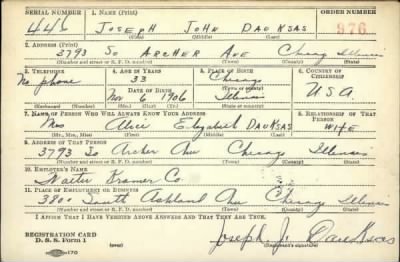 SERIAL NUMBER 1. NAME (Print) ORDER NUMBER
446 JOSEPH JOHN DAUKSAS 976
(First) (Middle) (Last)
2. ADDRESS (Print)
3793 So ARCHER AVE Chicago Illinois
(Number and street or R. F. D. number) (Town) (County) (State)
3. TELEPHONE 4. AGE IN YEARS 5. PLACE OF BIRTH 6. COUNTRY OF CITIZENSHIP
No phone 33 Chicago
DATE OF BIRTH (Town or county)
Nov 6 1906 Illinois U.S.A.
(Exchange) (Number) (Mo.) (Day) (Yr.) (State or country)
7. NAME OF PERSON WHO WILL ALWAYS KNOW YOUR ADDRESS 8. RELATIONSHIP OF THAT PERSON
Mrs Alice Elizabeth DAUKSAS WIFE
(Mr., Mrs., Miss) (First) (Middle) (Last)
9. ADDRESS OF THAT PERSON
3793 So Archer Ave Chicago Illinois
(Number and street or R. F. D. number) (Town) (County) (State)
10. EMPLOYER'S NAME
Walter Kramer Co.
11. PLACE OF EMPLOYMENT OR BUSINESS
3800 South Ashland Ave Chicago Illinois
(Number and street or R. F. D. number) (Town) (County) (State)
I AFFIRM THAT I HAVE VERIFIED ABOVE ANSWERS AND THAT THEY ARE TRUE.
REGISTRATION CARD
D. S. S. Form 1 (over) Joseph J. Dauksas
(Registrant's signature)